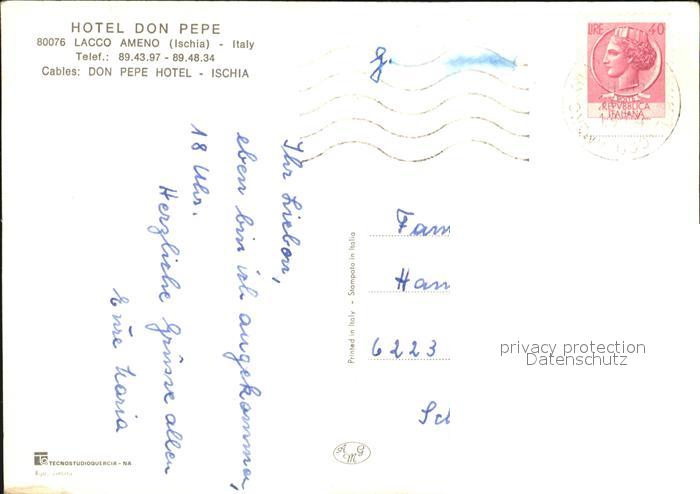 HOTEL DON PEPE
80076 LACCO AMENO (Ischia) - Italy
Telef.: 89.43.97 - 89.48.34
Cables: DON PEPE HOTEL - ISCHIA
g.
LIRE 40
POSTE
REPVBBLICA
ITALIANA
Ihr Lieben,
eben bin ich angekommen,
18 Uhr.
Herzliche Grüsse allen
Eure Maria
Printed in Italy - Stampato in Italia
Fam
Han
6223
Sch
privacy protection
Datenschutz
TECNOSTUDIOQUERCIA - NA